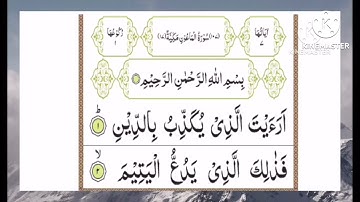 اٰيَاتُهَا ٧
(١٠٧) سُوْرَةُ الْمَاعُوْنِ مَكِّيَّةٌ (١٧)
رُكُوْعُهَا ١
KINEMASTER
بِسْمِ اللهِ الرَّحْمٰنِ الرَّحِيْمِ
اَرَءَيْتَ الَّذِىْ يُكَذِّبُ بِالدِّيْنِ ؕ ١
فَذٰلِكَ الَّذِىْ يَدُعُّ الْيَتِيْمَ ۙ ٢